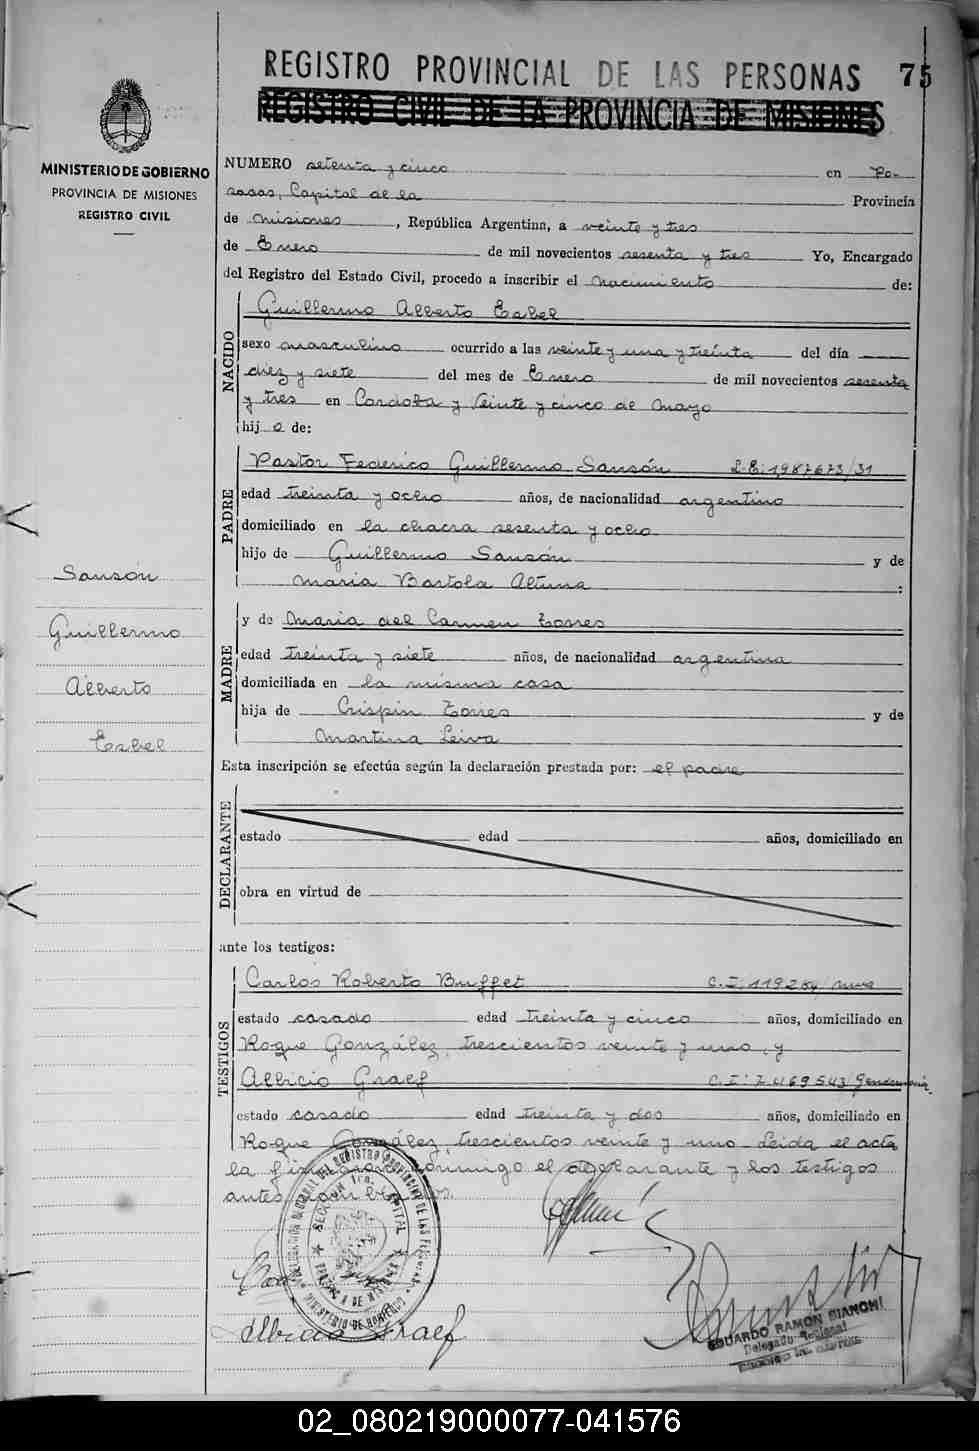 REGISTRO PROVINCIAL DE LAS PERSONAS 75
REGISTRO CIVIL DE LA PROVINCIA DE MISIONES
MINISTERIO DE GOBIERNO
PROVINCIA DE MISIONES
REGISTRO CIVIL
NUMERO setenta y cinco en Po-
sadas, Capital de la Provincia
de Misiones, República Argentina, a veinte y tres
de Enero de mil novecientos sesenta y tres Yo, Encargado
del Registro del Estado Civil, procedo a inscribir el nacimiento de:
NACIDO
Guillermo Alberto Esbel
sexo masculino ocurrido a las veinte y una y treinta del día
diez y siete del mes de Enero de mil novecientos sesenta
y tres en Cordoba y Veinte y cinco de Mayo
hij o de:
PADRE
Pastor Federico Guillermo Sansón L.E. 1.987.673/31
edad treinta y ocho años, de nacionalidad argentino
domiciliado en la chacra sesenta y ocho
hijo de Guillermo Sansón y de
Maria Bartola Altuna :
MADRE
y de Maria del Carmen Torres
edad treinta y siete años, de nacionalidad argentina
domiciliada en la misma casa
hija de Crispin Torres y de
Martina Leiva
Sansón
Guillermo
Alberto
Esbel
Esta inscripción se efectúa según la declaración prestada por: el padre
DECLARANTE
estado edad años, domiciliado en
obra en virtud de
ante los testigos:
TESTIGOS
Carlos Roberto Buffet C.I. 119284/mnes
estado casado edad treinta y cinco años, domiciliado en
Roque González trescientos veinte y uno, y
Albicio Graef C.I. 7.469.543 Gendarmeria
estado casado edad treinta y dos años, domiciliado en
Roque González trescientos veinte y uno. Leida el acta
la firmaron conmigo el declarante y los testigos
antes
Albicio Graef
EDUARDO RAMON BIANCHI
Delegado Regional
02_080219000077-041576